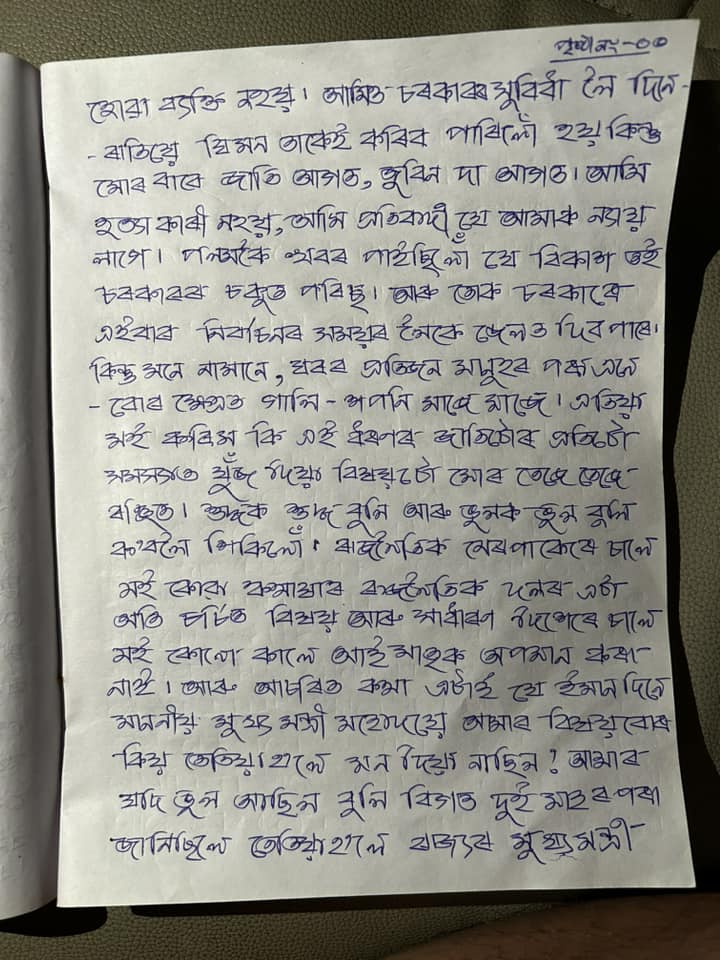 পৃষ্ঠা নং-০৩
হোৱা ব্যক্তি নহয়। আমিও চৰকাৰৰ সুবিধা লৈ দিনে-
- ৰাতিয়ে যিমন তাকেই কৰিব পাৰিলোঁ হয় কিন্তু
মোৰ বাবে জাতি আগত, জুবিন দা আগত। আমি
হত্যা কাৰী নহয়, আমি প্ৰতিবাদী যে আমাক ন্যায়
লাগে। পলমকৈ খবৰ পাইছিলোঁ যে বিকাশ তই
চৰকাৰৰ চকুত পৰিছ। আৰু তোক চৰকাৰে
এইবাৰ নিৰ্বাচনৰ সময়ৰ জেলত দিব পাৰে।
কিন্তু মনে নামানে, ঘৰৰ প্ৰতিজন মানুহৰ পৰা এনে
- বোৰ গালি-শপনি মাজে মাজে। এতিয়া
মই কৰিম কি এই ধৰণৰ জাতিটোৰ প্ৰতিটো
সমস্যাতে যুঁজ দিয়া বিষয়টো মোৰ তেজে তেজে
শুদ্ধক শুদ্ধ বুলি আৰু ভুলক ভুল বুলি
ক'বলৈ শিকিলোঁ। ৰাজনৈতিক মেৰপাকেৰে চালে
মই কোৱা কথাষাৰ ৰাজনৈতিক দলৰ এটা
অতি চৰ্চিত বিষয় আৰু সাধাৰণ দিশেৰে চালে
মই কোনো কালে আই মাতৃক অপমান কৰা
নাই। আৰু আচৰিত কথা এটাই যে ইমান দিনে
মাননীয় মুখ্য মন্ত্ৰী মহোদয়ে আমাৰ বিষয়বোৰ
কিয় তেতিয়াহ'লে মন দিয়া নাছিল? আমাৰ
যদি ভুল আছিল বুলি বিগত দুই মাহৰ পৰা
জানিছিলে তেতিয়াহ'লে ৰাজ্যৰ মুখ্যমন্ত্ৰী-